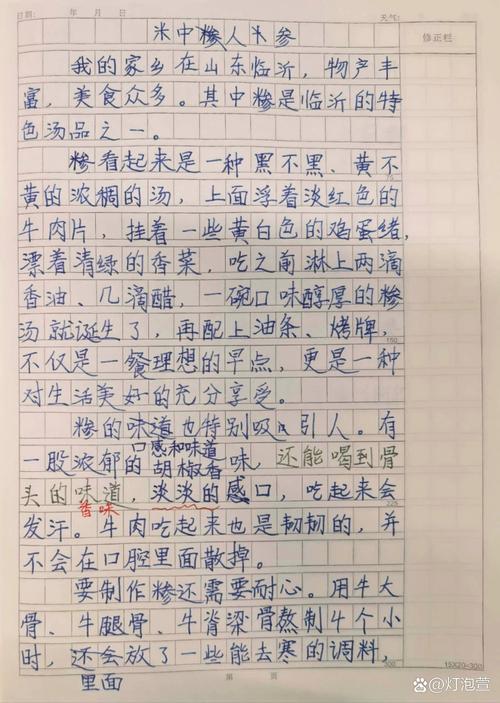 日期: 年 月 日 天气:
修正栏
米中糁人木参
我的家乡在山东临沂，物产丰
富，美食众多。其中糁是临沂的特
色汤品之一。
糁看起来是一种黑不黑、黄不
黄的浓稠的汤，上面浮着淡红色的
牛肉片，挂着一些黄白色的鸡蛋绪，
漂着清绿的香菜，吃之前淋上两滴
香油、几滴醋，一碗口味醇厚的糁
汤就诞生了，再配上油条、烤牌，
150
不仅是一餐理想的早点，更是一种
对生活美好的充分享受。
糁的味道也特别吸引人。有
口感和味道
一股浓郁的胡椒香味，还能喝到骨
头的味道，淡淡的感口，吃起来会
香味
225
发汗。牛肉吃起来也是韧韧的，并
不会在口腔里面散掉。
要制作糁还需要耐心。用牛大
骨、牛腿骨、牛脊梁骨熬制4个小
时，还会放了一些能去寒的调料，
300
15X20=300
里面
第 页
@灯泡萱